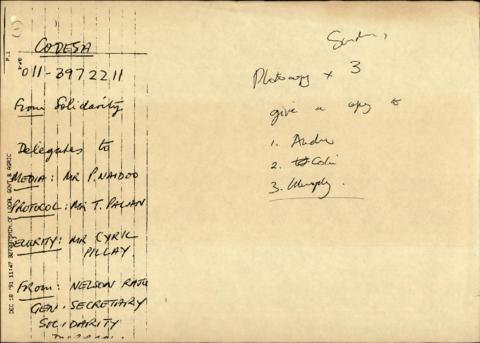 P.1
CODESA
011-397 2211
From Solidarity
Delegates to
MEDIA: MR P. NAIDOO
PROTOCOL: MR T. PALAN
SECURITY: MR CYRIL
PILLAY.
FROM: NELSON RAJU
GEN. SECRETARY
SOLIDARITY
DEC 18 '91 11:47 DEPARTMENT OF LOCAL GOVT & AGRIC
Photocopy x 3
give a copy to
1. Andre
2. Colin
3. Murphy.